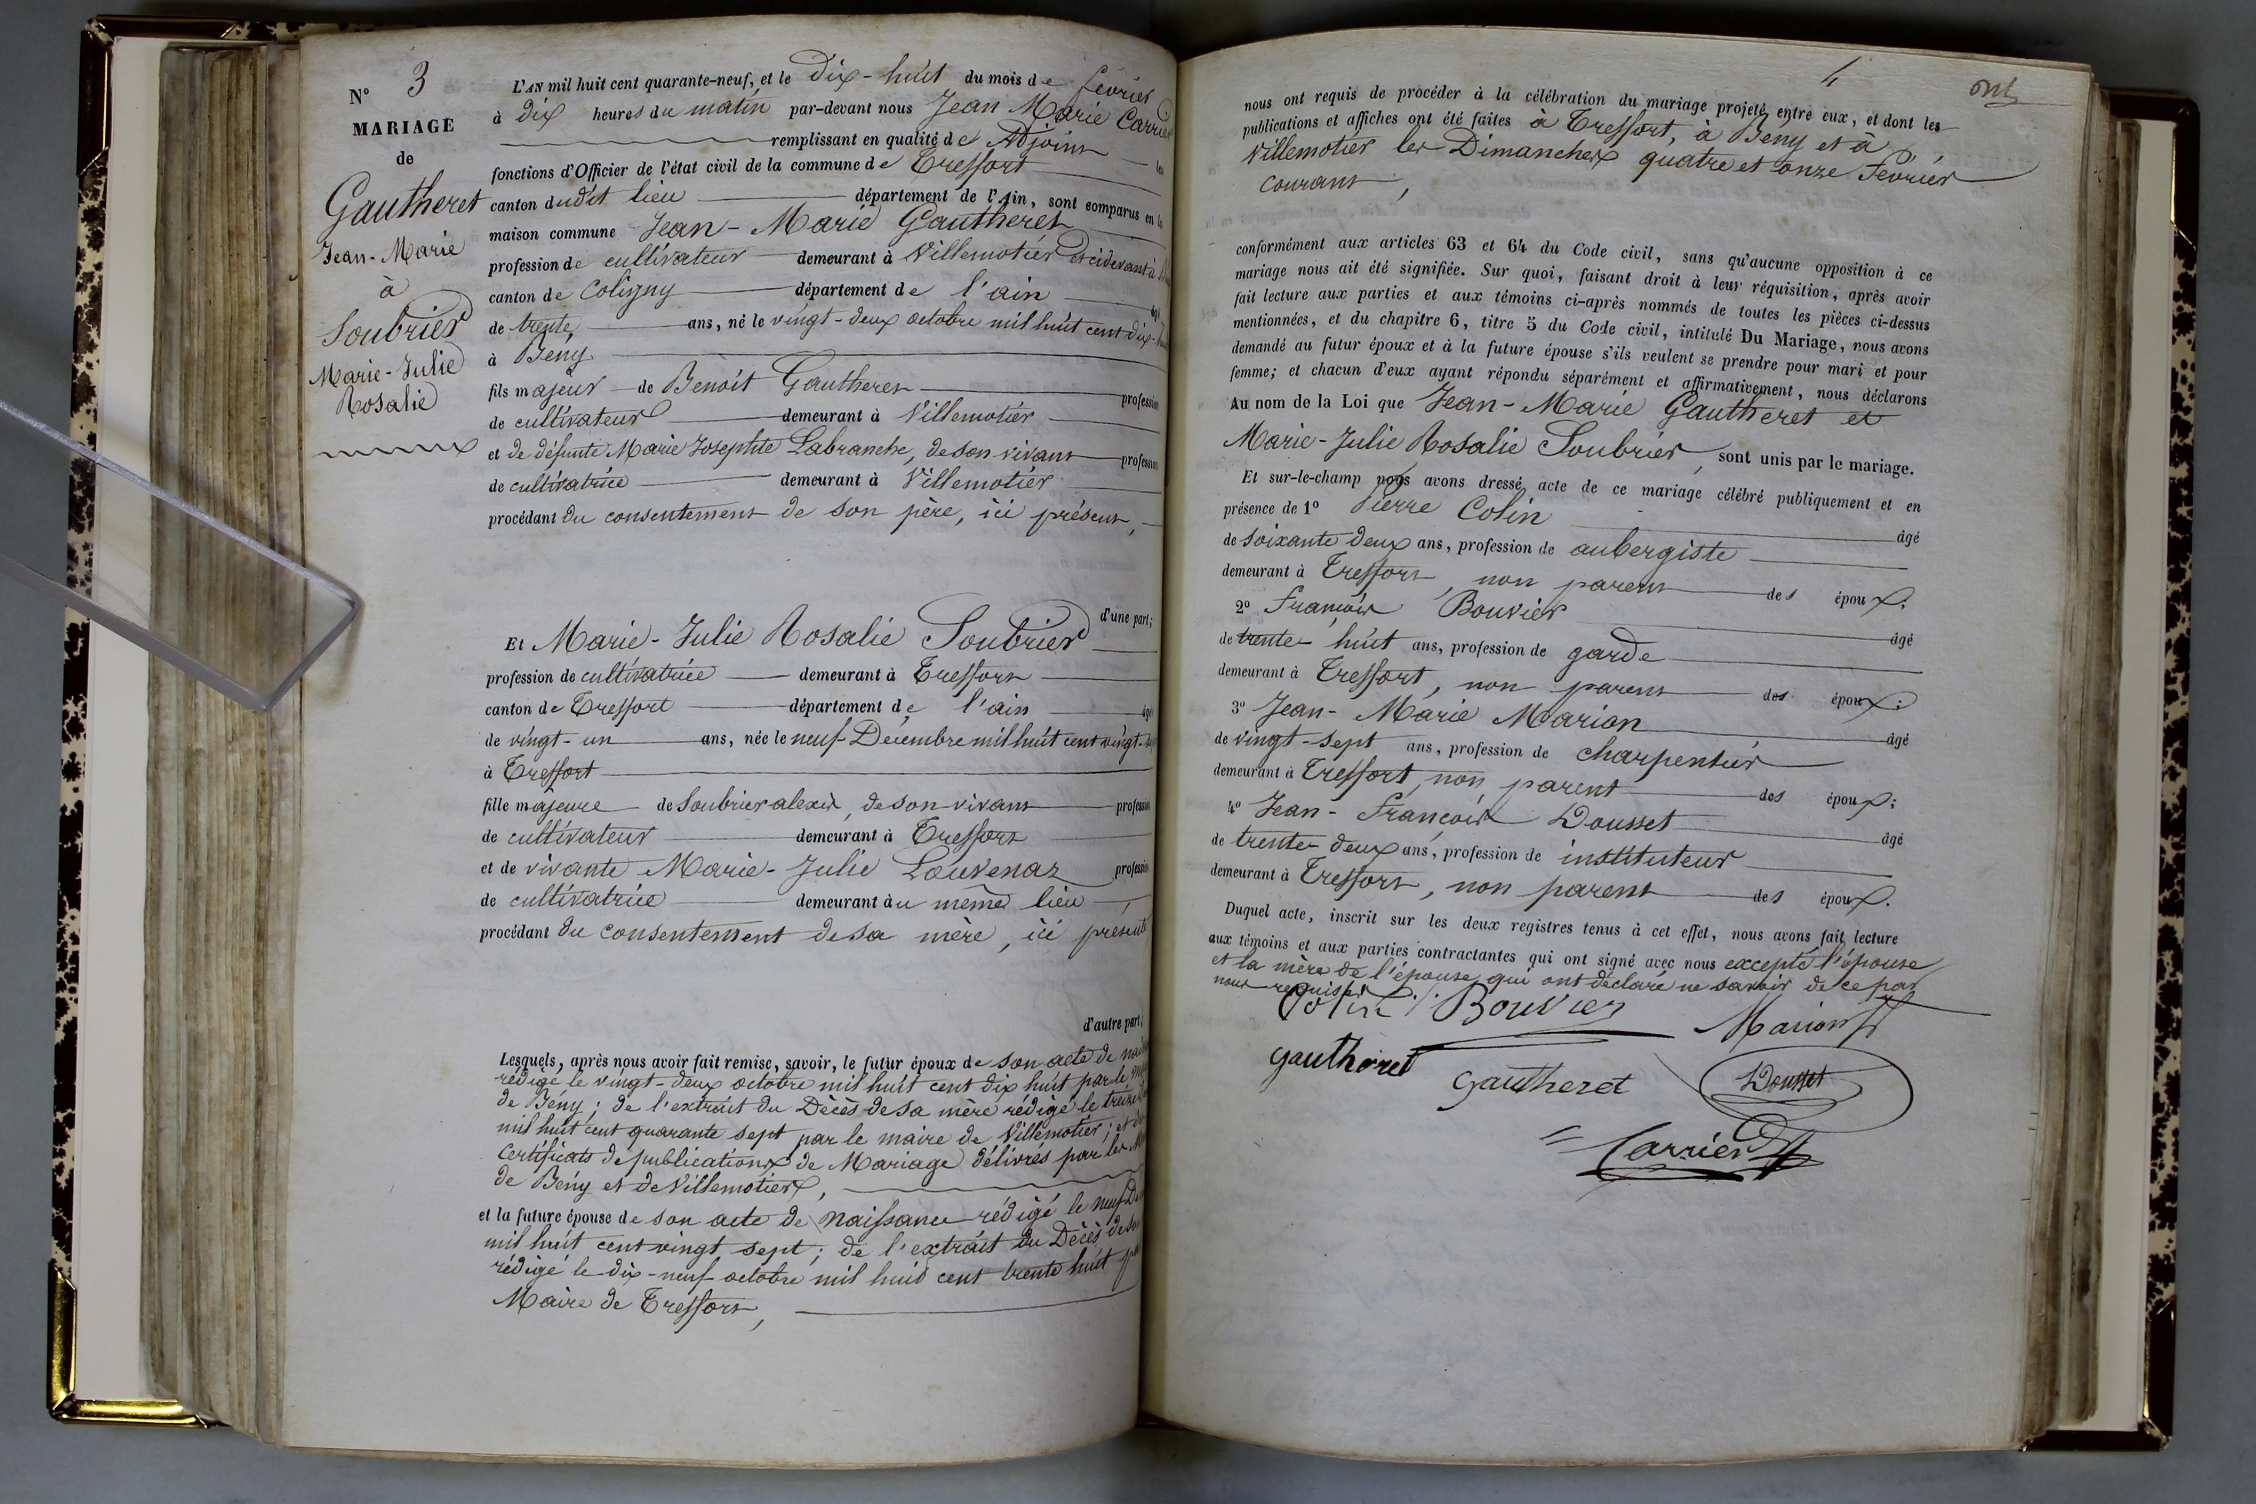 N° 3
MARIAGE
de
Gautheret
Jean-Marie
à
Soubrier
Marie-Julie
Rosalie
L'AN mil huit cent quarante-neuf, et le Dix-huit du mois de février
à dix heures du matin par-devant nous Jean Marie Carrier
remplissant en qualité de Adjoint les
fonctions d'Officier de l'état civil de la commune de Treffort
canton dudit lieu département de l'Ain, sont comparus en la
maison commune Jean-Marie Gautheret
profession de cultivateur demeurant à Villemotier et cidevant à
canton de Coligny département de l'ain âgé
de trente ans, né le vingt-deux octobre mil huit cent dix-huit
à Bény
fils majeur de Benoit Gautheret profession
de cultivateur demeurant à Villemotier
et de défunte Marie Josephte Labranche, de son vivant profession
de cultivatrice demeurant à Villemotier
procédant du consentement de son père, ici présent,
d'une part;
Et Marie-Julie Rosalie Soubrier
profession de cultivatrice demeurant à Treffort
canton de Treffort département de l'ain âgée
de vingt-un ans, née le neuf Décembre mil huit cent vingt-sept
à Treffort
fille majeure de Soubrier alexis, de son vivant profession
de cultivateur demeurant à Treffort
et de vivante Marie-Julie Louvenaz profession
de cultivatrice demeurant au même lieu,
procédant du consentement de sa mère, ici présente
d'autre part;
Lesquels, après nous avoir fait remise, savoir, le futur époux de son acte de
rédigé le vingt-deux octobre mil huit cent dix huit par le
de Bény; de l'extrait du Décès de sa mère rédigé le treize
mil huit cent quarante sept par le maire de Villemotier; et
certificats de publications de Mariage délivrés par les
de Bény et de Villemotier,
et la future épouse de son acte de naissance rédigé le neuf
mil huit cent vingt sept; de l'extrait du Décès de son
rédigé le dix-neuf octobre mil huit cent trente huit
Maire de Treffort,
4
nous ont requis de procéder à la célébration du mariage projeté entre eux, et dont les
publications et affiches ont été faites à Treffort, à Bény et à
Villemotier les Dimanches quatre et onze Février
courant,
conformément aux articles 63 et 64 du Code civil, sans qu'aucune opposition à ce
mariage nous ait été signifiée. Sur quoi, faisant droit à leur réquisition, après avoir
fait lecture aux parties et aux témoins ci-après nommés de toutes les pièces ci-dessus
mentionnées, et du chapitre 6, titre 5 du Code civil, intitulé Du Mariage, nous avons
demandé au futur époux et à la future épouse s'ils veulent se prendre pour mari et pour
femme; et chacun d'eux ayant répondu séparément et affirmativement, nous déclarons
Au nom de la Loi que Jean-Marie Gautheret et
Marie-Julie Rosalie Soubrier, sont unis par le mariage.
Et sur-le-champ nous avons dressé acte de ce mariage célébré publiquement et en
présence de 1° Pierre Colin âgé
de soixante deux ans, profession de aubergiste
demeurant à Treffort, non parent des époux;
2° François Bouvier âgé
de trente-huit ans, profession de garde
demeurant à Treffort, non parent des époux;
3° Jean-Marie Marion âgé
de vingt-sept ans, profession de charpentier
demeurant à Treffort, non parent des époux;
4° Jean-François Dousset âgé
de trente-deux ans, profession de instituteur
demeurant à Treffort, non parent des époux.
Duquel acte, inscrit sur les deux registres tenus à cet effet, nous avons fait lecture
aux témoins et aux parties contractantes qui ont signé avec nous excepté l'épouse
et la mère de l'épouse qui ont déclaré ne savoir de ce par
nous requises
Colin Bouvier Marion
gautheret gautheret Dousset
Carrier